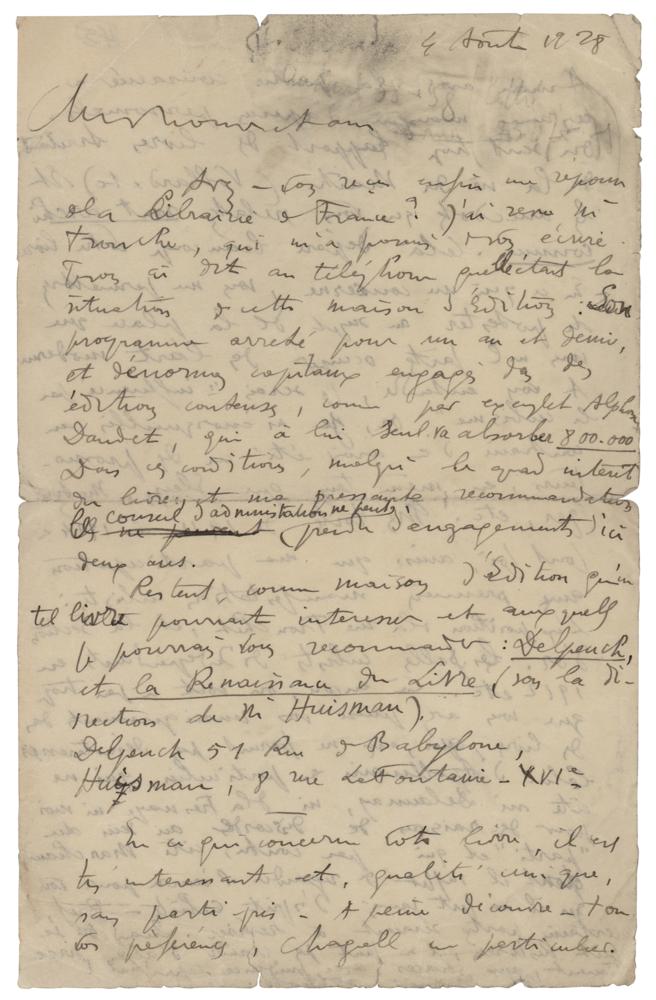 4 Août 1928
Cher Monsieur et ami
Avez-vous reçu enfin une réponse
de la Librairie de France ? J'ai revu M.
qui m'a promis vous écrire.
Il vous ai dit au téléphone quelle était la
situation de cette maison d'Édition : Son
programme arrêté pour un an et demi,
et d'énormes capitaux engagés dans des
éditions couteuses, comme par exemple Alphonse
Daudet, qui à lui seul va absorber 800.000
Dans ces conditions, malgré le grand intérêt
du livre, et ma pressante recommandation
le conseil d'administration ne peut
ne peuvent prendre d'engagements d'ici
deux ans.
Restent, comme maisons d'Édition qu'un
tel livre pourrait interesser et auxquelles
je pourrais vous recommander : Delpeuch,
et la Renaissance du Livre (sous la di-
rection de M Huisman).
Delpeuch 51 Rue de Babylone,
Huisman, 8 rue La Fontaine - XVIe
En ce qui concerne votre livre, il est
très interessant et, qualité unique,
sans parti pris - à peine découvre-t-on
vos préférences, Chagall en particulier.